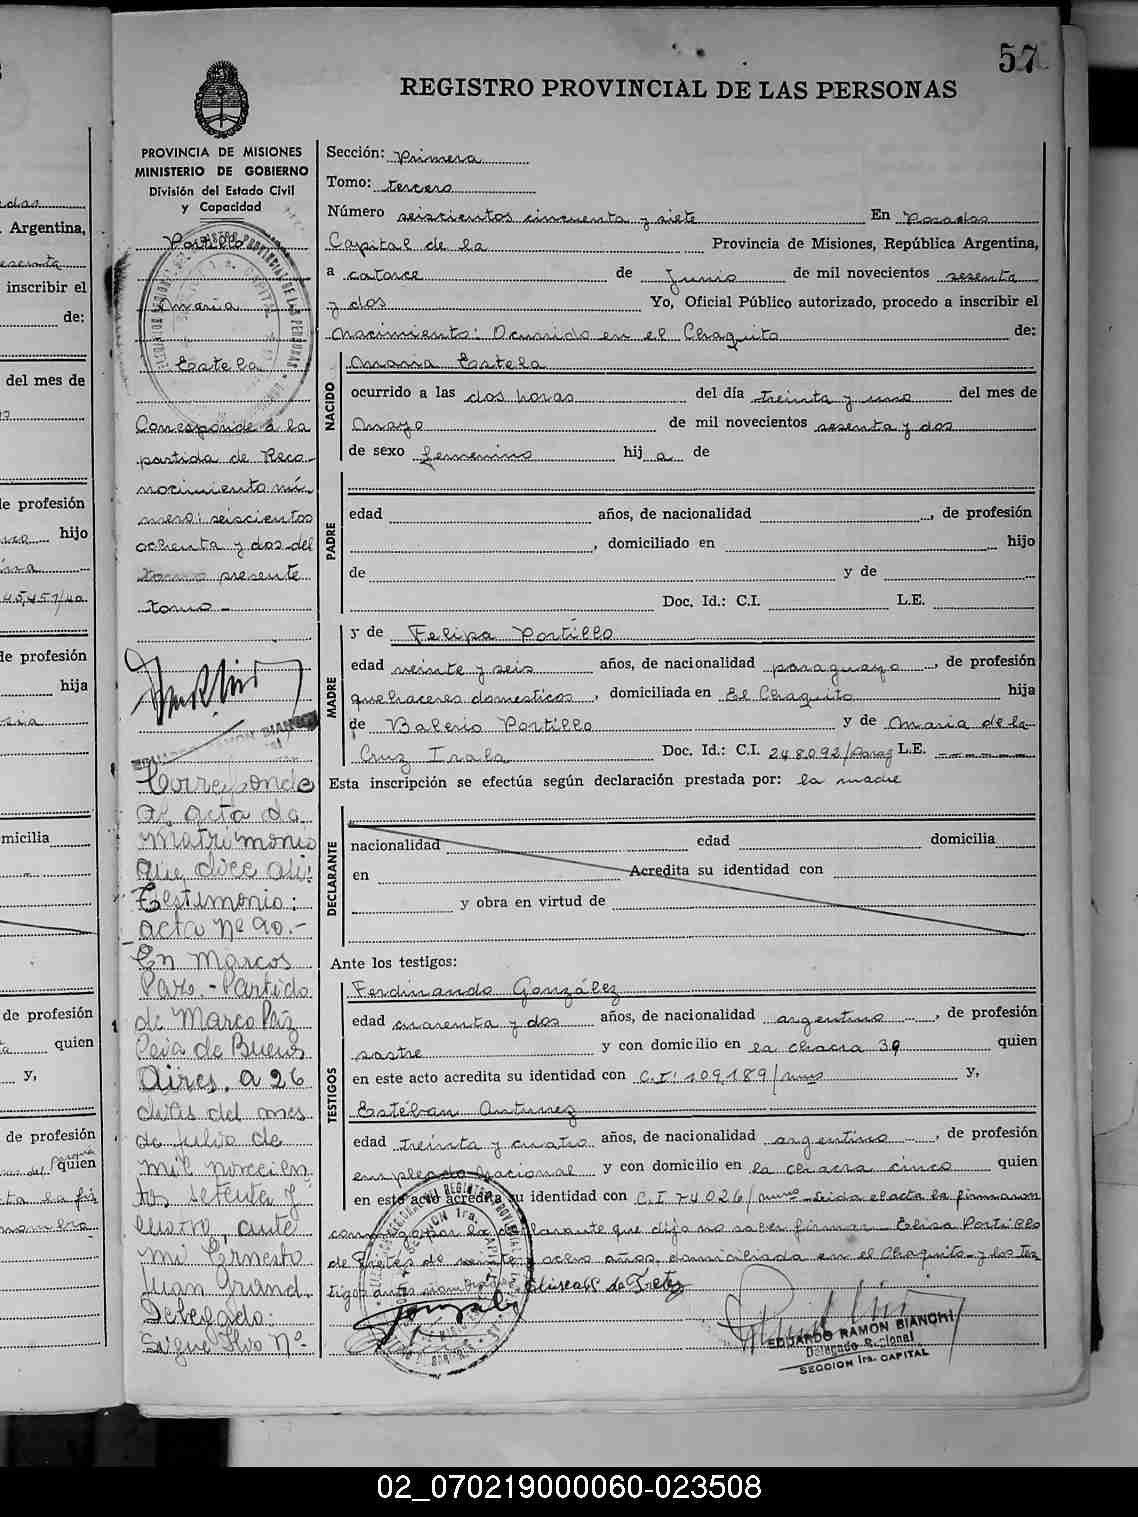 57
REGISTRO PROVINCIAL DE LAS PERSONAS
PROVINCIA DE MISIONES
MINISTERIO DE GOBIERNO
División del Estado Civil
y Capacidad
Portillo
Maria
Estela
Corresponde a la
partida de Reco-
nocimiento nú-
mero: seiscientos
ochenta y dos del
presente
tomo -
Corresponde
al acta de
matrimonio
que dice asi:
Testimonio:
acta Nº 90.-
En Marcos
Paz.- Partido
de Marco Paz
Pcia de Buenos
Aires, a 26
dias del mes
de Julio de
mil novecien
tos setenta y
cuatro, ante
mi Ernesto
Juan Grand.
Delegado:
Sigue Flio Nº-
Sección: Primera
Tomo: tercero
Número seiscientos cincuenta y siete En Posadas
Capital de la Provincia de Misiones, República Argentina,
a catorce de Junio de mil novecientos sesenta
y dos Yo, Oficial Público autorizado, procedo a inscribir el
nacimiento: Ocurrido en el Chaquito de:
NACIDO
Maria Estela
ocurrido a las dos horas del día treinta y uno del mes de
Mayo de mil novecientos sesenta y dos
de sexo femenino hij a de
PADRE
edad años, de nacionalidad , de profesión
, domiciliado en hijo
de y de
Doc. Id.: C.I. L.E.
MADRE
y de Felipa Portillo
edad veinte y seis años, de nacionalidad paraguaya , de profesión
quehaceres domesticos , domiciliada en El Chaquito hija
de Balerio Portillo y de Maria de la
Cruz Irala Doc. Id.: C.I. 248092/Parag L.E.
Esta inscripción se efectúa según declaración prestada por: la madre
DECLARANTE
nacionalidad edad domicilia
en Acredita su identidad con
y obra en virtud de
Ante los testigos:
TESTIGOS
Ferdinando González
edad cuarenta y dos años, de nacionalidad argentino , de profesión
sastre y con domicilio en la chacra 39 quien
en este acto acredita su identidad con C.I: 109,189/mnes y,
Estéban Antunez
edad treinta y cuatro años, de nacionalidad argentino , de profesión
empleado Nacional y con domicilio en la chacra cinco quien
en este acto acredita su identidad con C.I 74026/mnes- Leida el acta la firmaron
conmigo por la declarante que dijo no saber firmar Elisa Portillo
de Fretes de veinte y ocho años, domiciliada en el Chaquito y los tes
tigos antes nombrados de Fretez
Gonzalez
EDUARDO RAMON BIANCHI
Delegado Regional
SECCION 1ra. CAPITAL
Argentina,
inscribir el
de:
del mes de
de profesión
hijo
de profesión
hija
micilia
de profesión
quien
y,
de profesión
quien
02_070219000060-023508